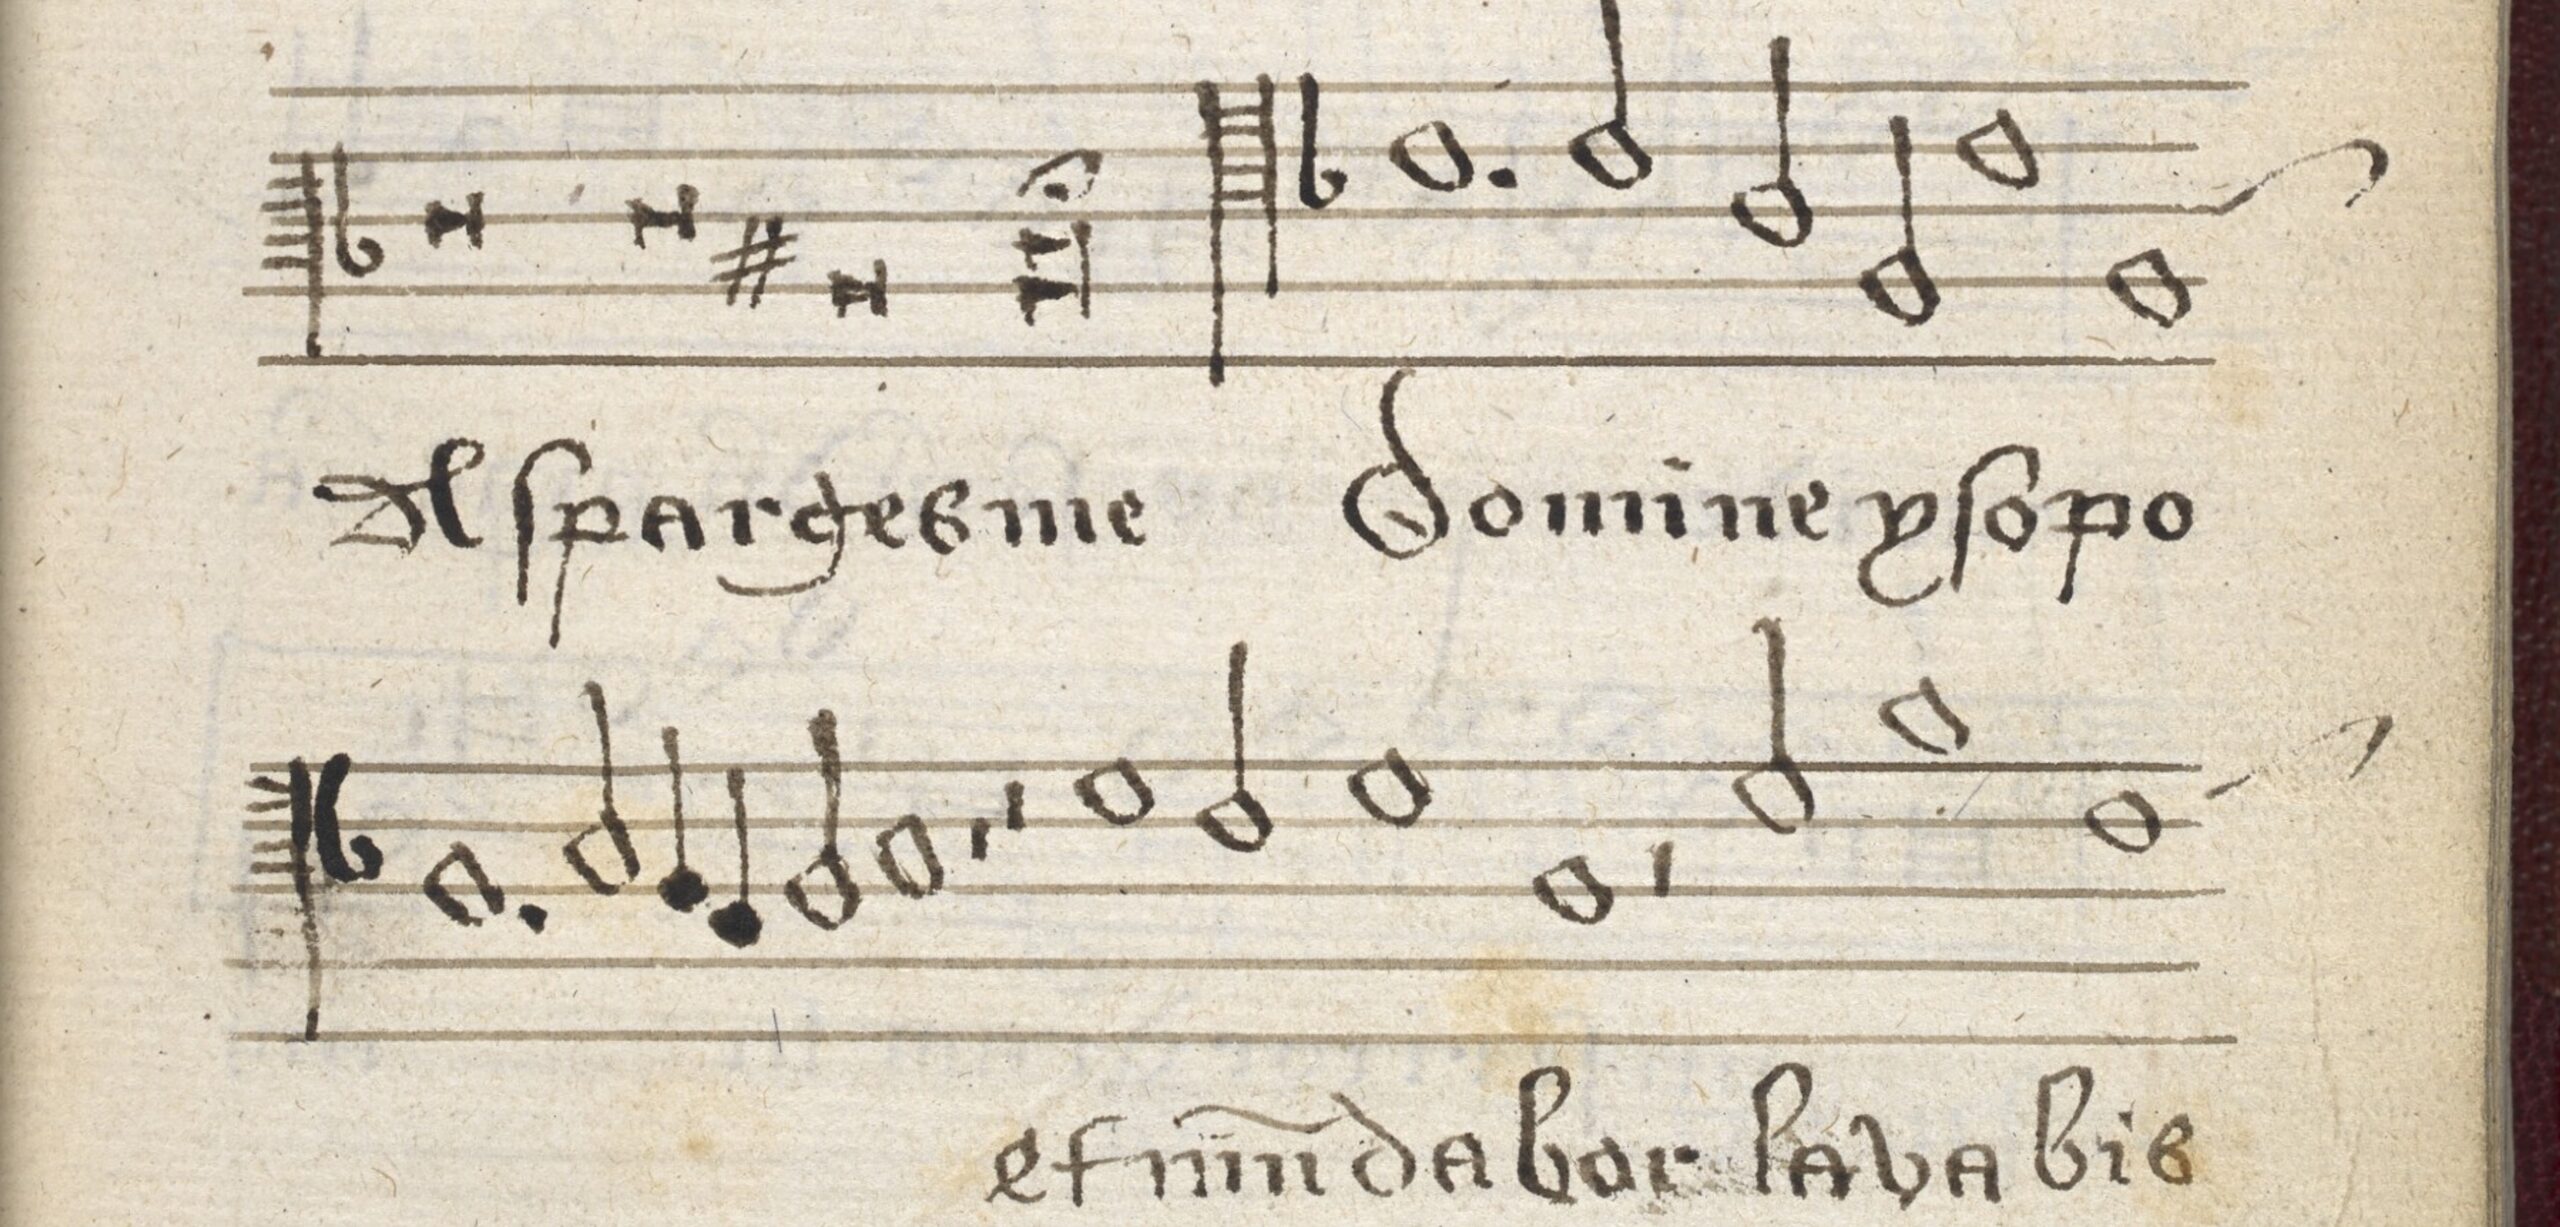 Aſparges me Domine yſopo
et mūdabor lavabis